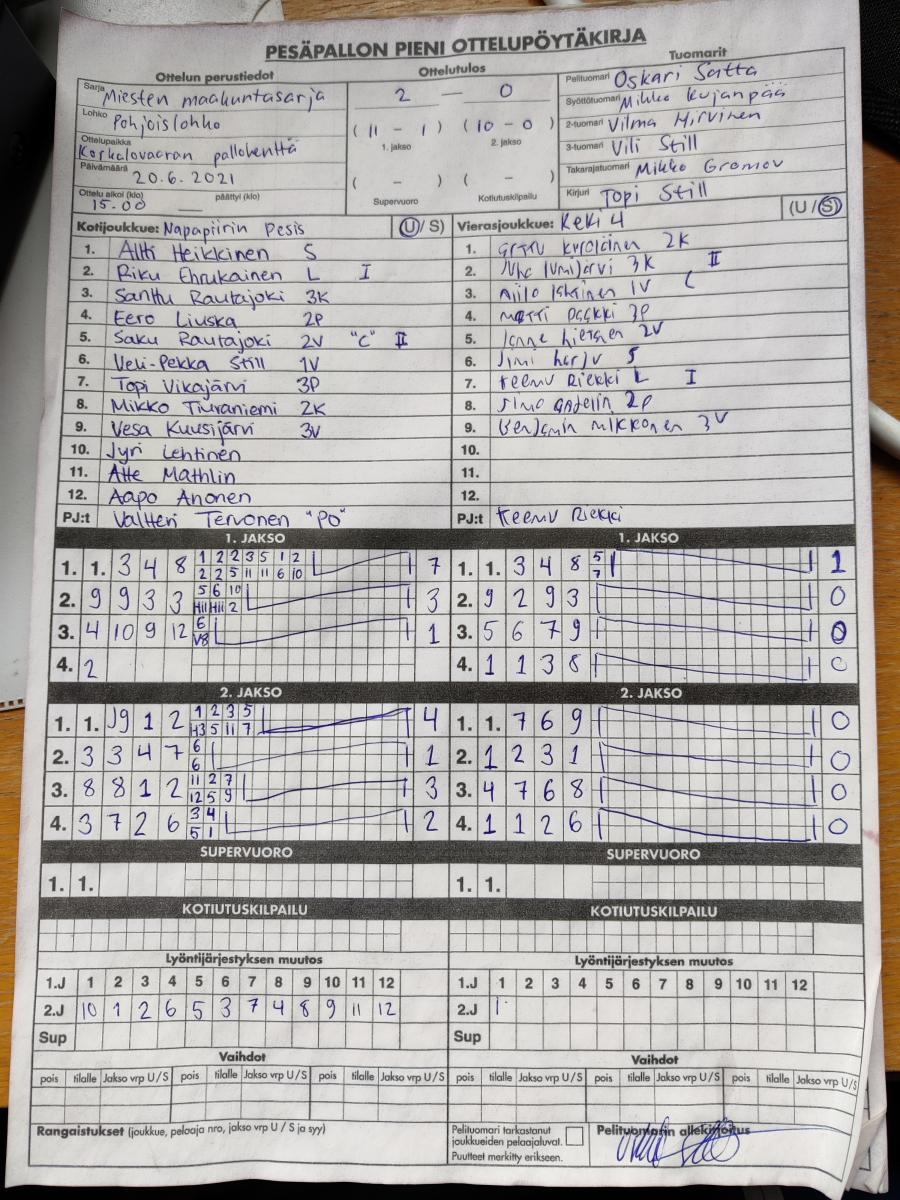 PESÄPALLON PIENI OTTELUPÖYTÄKIRJA
Ottelun perustiedot
Sarja Miesten maakuntasarja
Lohko Pohjoislohko
Ottelupaikka Korkalovaaran pallokenttä
Päivämäärä 20.6.2021
Ottelu alkoi (klo) 15.00 päättyi (klo)
Ottelutulos
2 — 0
( 11 - 1 ) ( 10 - 0 )
1. jakso 2. jakso
( - ) ( - )
Supervuoro Kotiutuskilpailu
Tuomarit
Pelituomari Oskari Satta
Syöttötuomari Mikko Kujanpää
2-tuomari Vilma Hirvinen
3-tuomari Vili Still
Takarajatuomari Mikko Gromov
Kirjuri Topi Still
Kotijoukkue: Napapiirin Pesis (U/ S)
1. Altti Heikkinen S
2. Riku Ehrukainen L I
3. Santtu Rautajoki 3K
4. Eero Liuska 2P
5. Saku Rautajoki 2V "C" II
6. Veli-Pekka Still 1V
7. Topi Vikajärvi 3P
8. Mikko Tiuraniemi 2K
9. Vesa Kuusijärvi 3V
10. Jyri Lehtinen
11. Atte Mathlin
12. Aapo Anonen
PJ:t Valtteri Tervonen "PO"
Vierasjoukkue: Keki 4 (U / S)
1. 2K
2. 3K II
3. 1V C
4. 3P
5. 2V
6. Jimi harju S
7. teemu Riekki L I
8. 2P
9. Benjamin mikkonen 3V
10.
11.
12.
PJ:t teemu Riekki
1. JAKSO
1. 1. 3 4 8 1 2 2 3 5 1 2 7
2 2 5 11 11 6 10
2. 9 9 3 3 5 6 10 3
H11 H11 2
3. 4 10 9 12 6 1
V8
4. 2
1. JAKSO
1. 1. 3 4 8 5 1
7
2. 9 2 9 3 0
3. 5 6 7 9 0
4. 1 1 3 8 0
2. JAKSO
1. 1. J9 1 2 1 2 3 5 4
H3 5 11 7
2. 3 3 4 7 6 1
6
3. 8 8 1 2 11 2 7 3
12 5 9
4. 3 7 2 6 3 4 2
5 1
2. JAKSO
1. 1. 7 6 9 0
2. 1 2 3 1 0
3. 4 7 6 8 0
4. 1 1 2 6 0
SUPERVUORO
1. 1.
SUPERVUORO
1. 1.
KOTIUTUSKILPAILU
KOTIUTUSKILPAILU
Lyöntijärjestyksen muutos
1.J 1 2 3 4 5 6 7 8 9 10 11 12
2.J 10 1 2 6 5 3 7 4 8 9 11 12
Sup
Lyöntijärjestyksen muutos
1.J 1 2 3 4 5 6 7 8 9 10 11 12
2.J 1
Sup
Vaihdot
pois tilalle Jakso vrp U/S pois tilalle Jakso vrp U/S pois tilalle Jakso vrp U/S
Vaihdot
pois tilalle Jakso vrp U/S pois tilalle Jakso vrp U/S pois tilalle Jakso vrp U/S
Rangaistukset (joukkue, pelaaja nro, jakso vrp U / S ja syy)
Pelituomari tarkastanut
joukkueiden pelaajaluval.
Puutteet merkitty erikseen.
Pelituomarin allekirjoitus